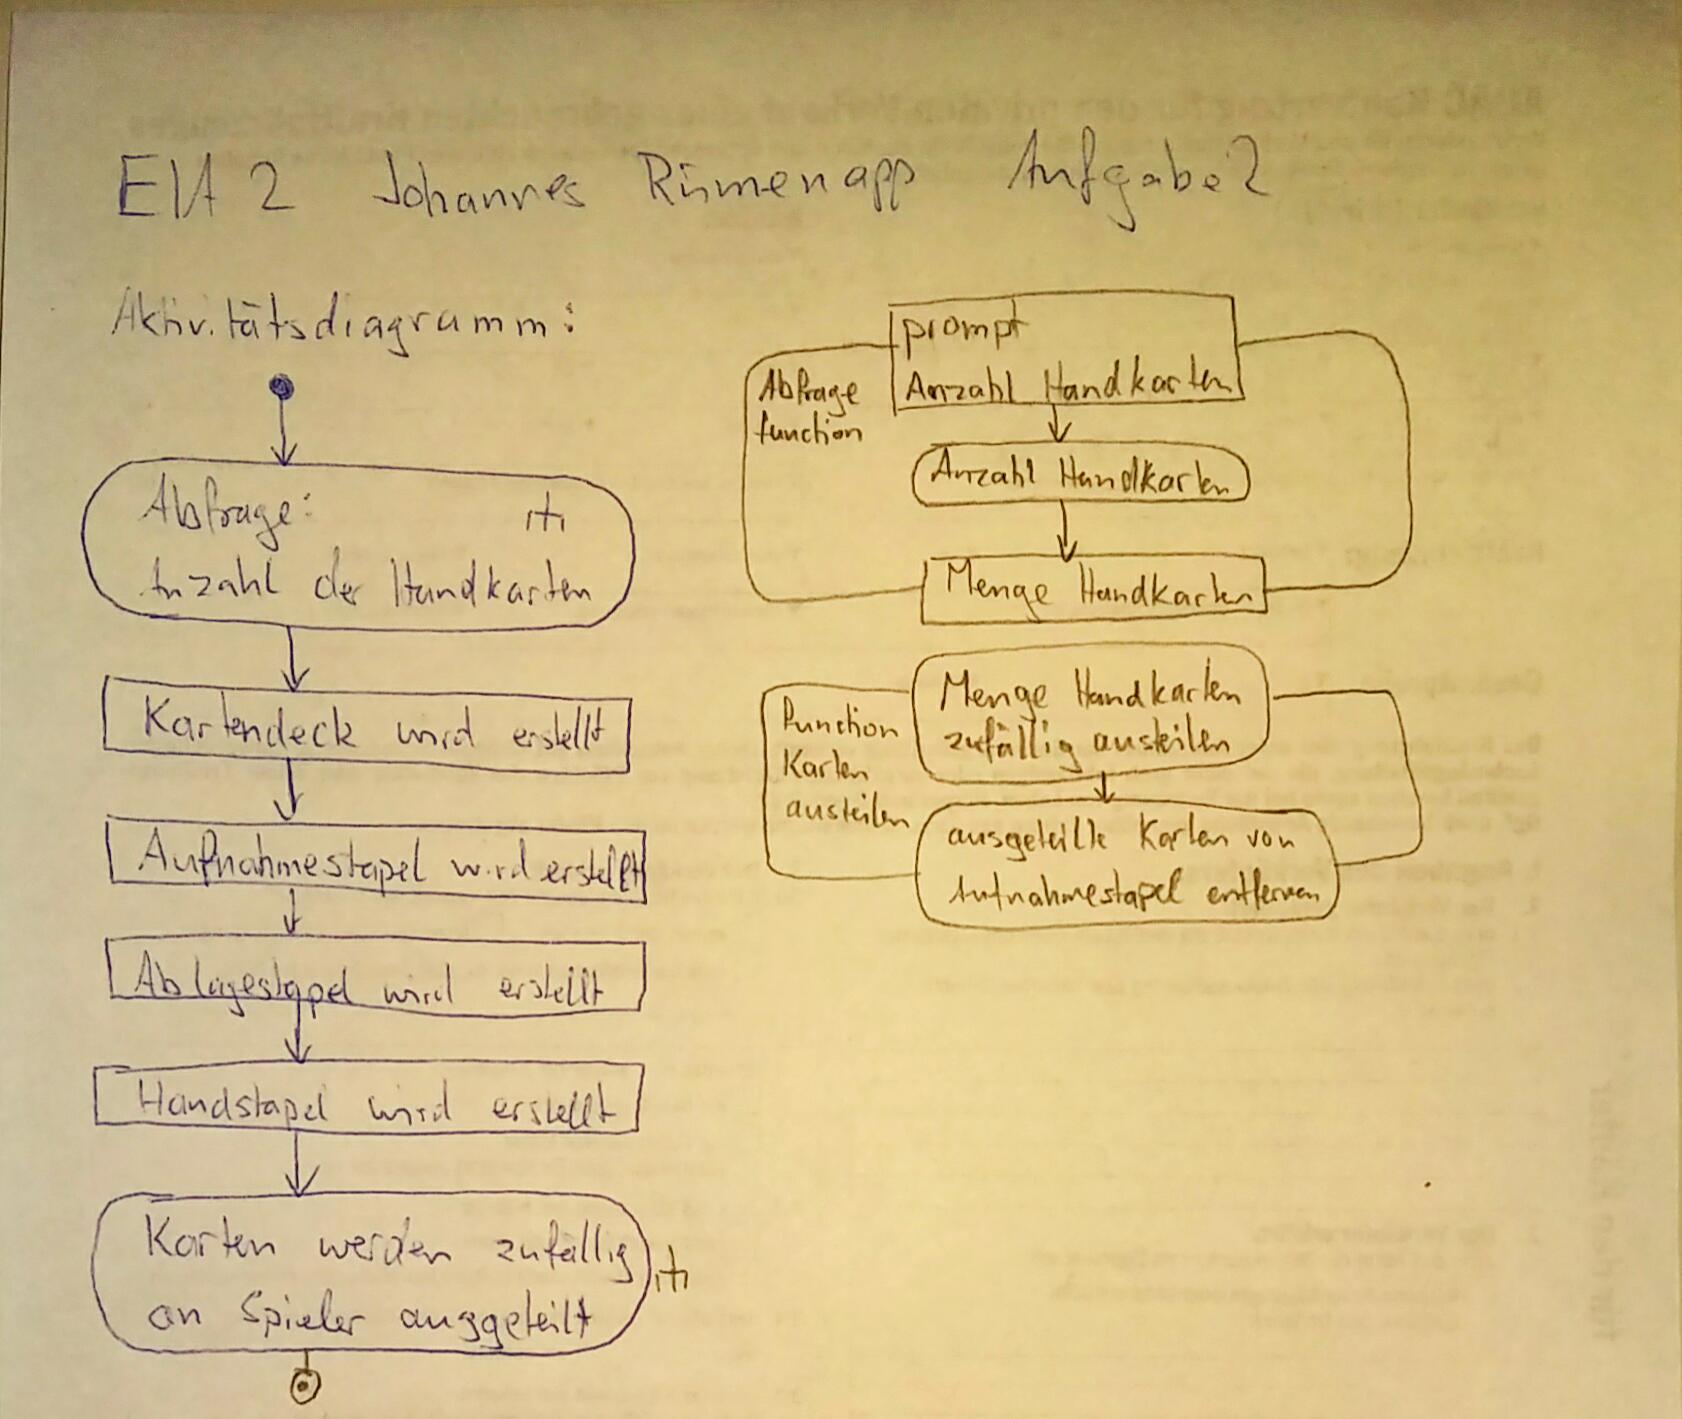 EIA 2 Johannes Rümenapp Aufgabe 2
Aktivitätsdiagramm:
Abfrage:
Anzahl der Handkarten
Kartendeck wird erstellt
Aufnahmestapel wird erstellt
Ablagestapel wird erstellt
Handstapel wird erstellt
Karten werden zufällig
an Spieler ausgeteilt
Abfrage
function
prompt
Anzahl Handkarten
Anzahl Handkarten
Menge Handkarten
Function
Karten
austeilen
Menge Handkarten
zufällig austeilen
ausgeteilte Karten von
Aufnahmestapel entfernen